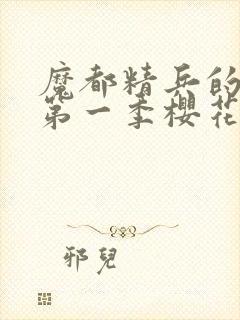 魔都精兵的
第一季櫻花
邪兒